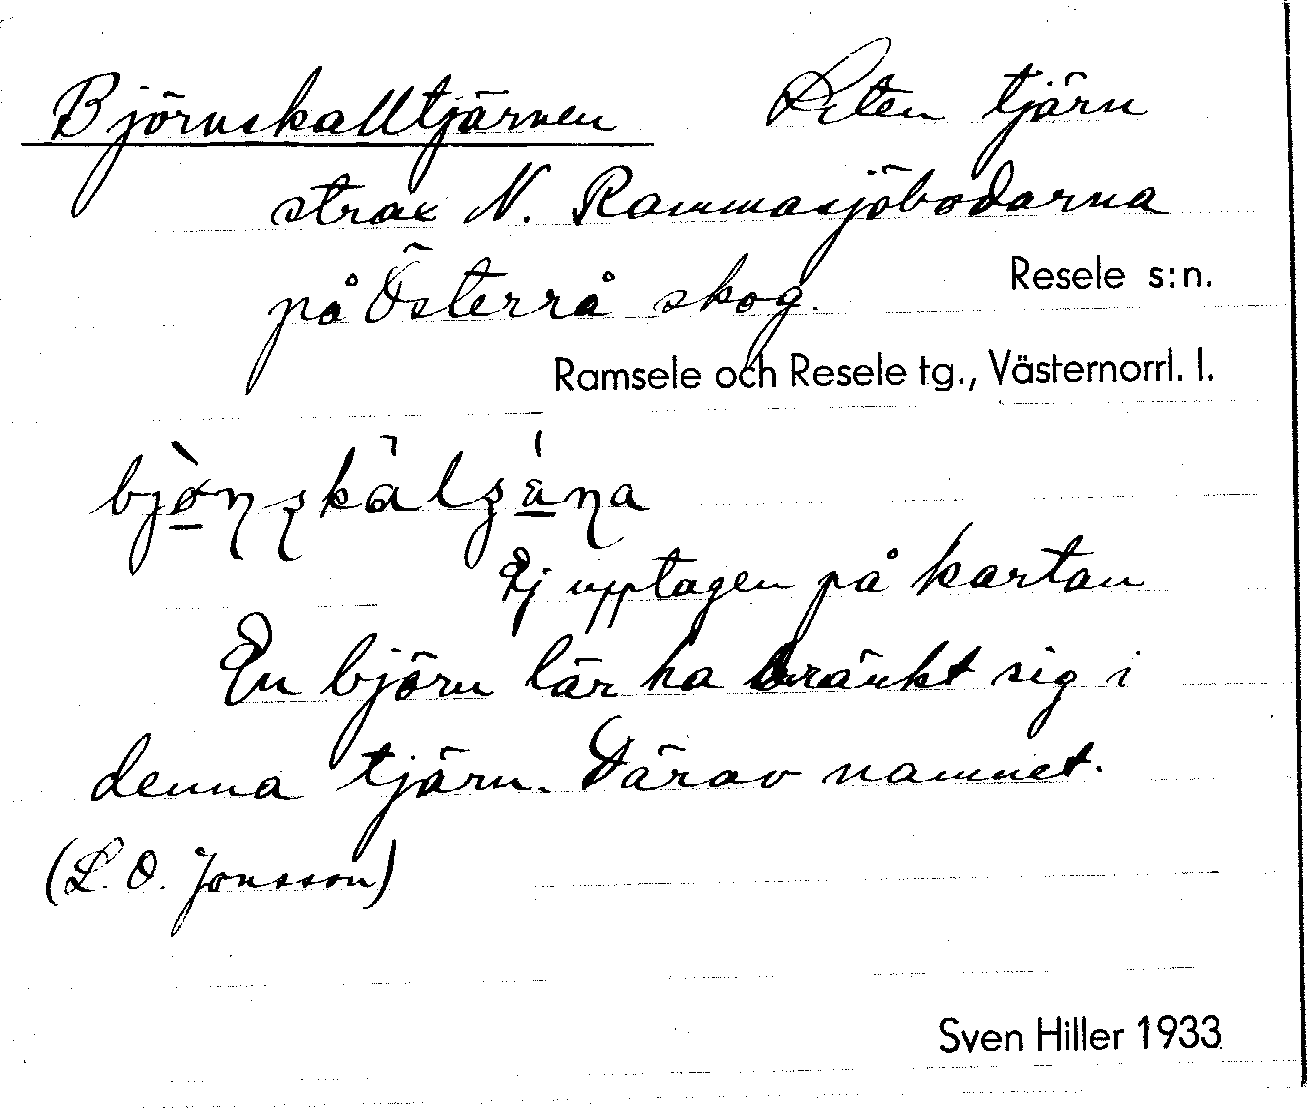 Björnskalltjärnen Liten tjärn
strax N. Rammasjöbodarna
på Österrå skog. Resele s:n.
Ramsele och Resele tg., Västernorrl. l.
Ej upptagen på kartan
En björn lär ha dränkt sig i
denna tjärn. Därav namnet.
(L. O. Jonsson)
Sven Hiller 1933